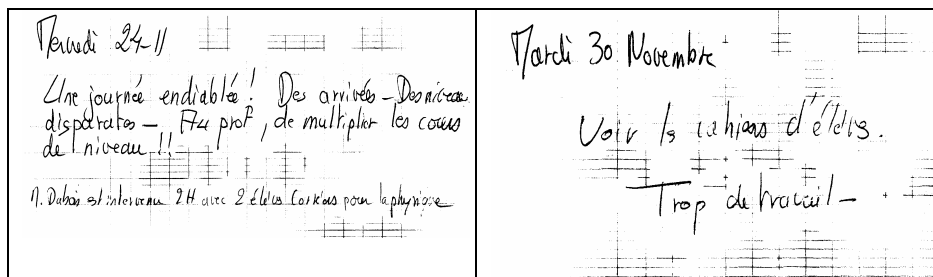 Mercredi 24-11
Une journée endiablée! Des arrivées - Des niveaux
disparates - Au prof, de multiplier les cours
de niveau!!
M. Dubois est intervenu 2H avec 2 élèves pour la physique
Mardi 30 Novembre
Voir les cahiers d'élèves.
Trop de travail -